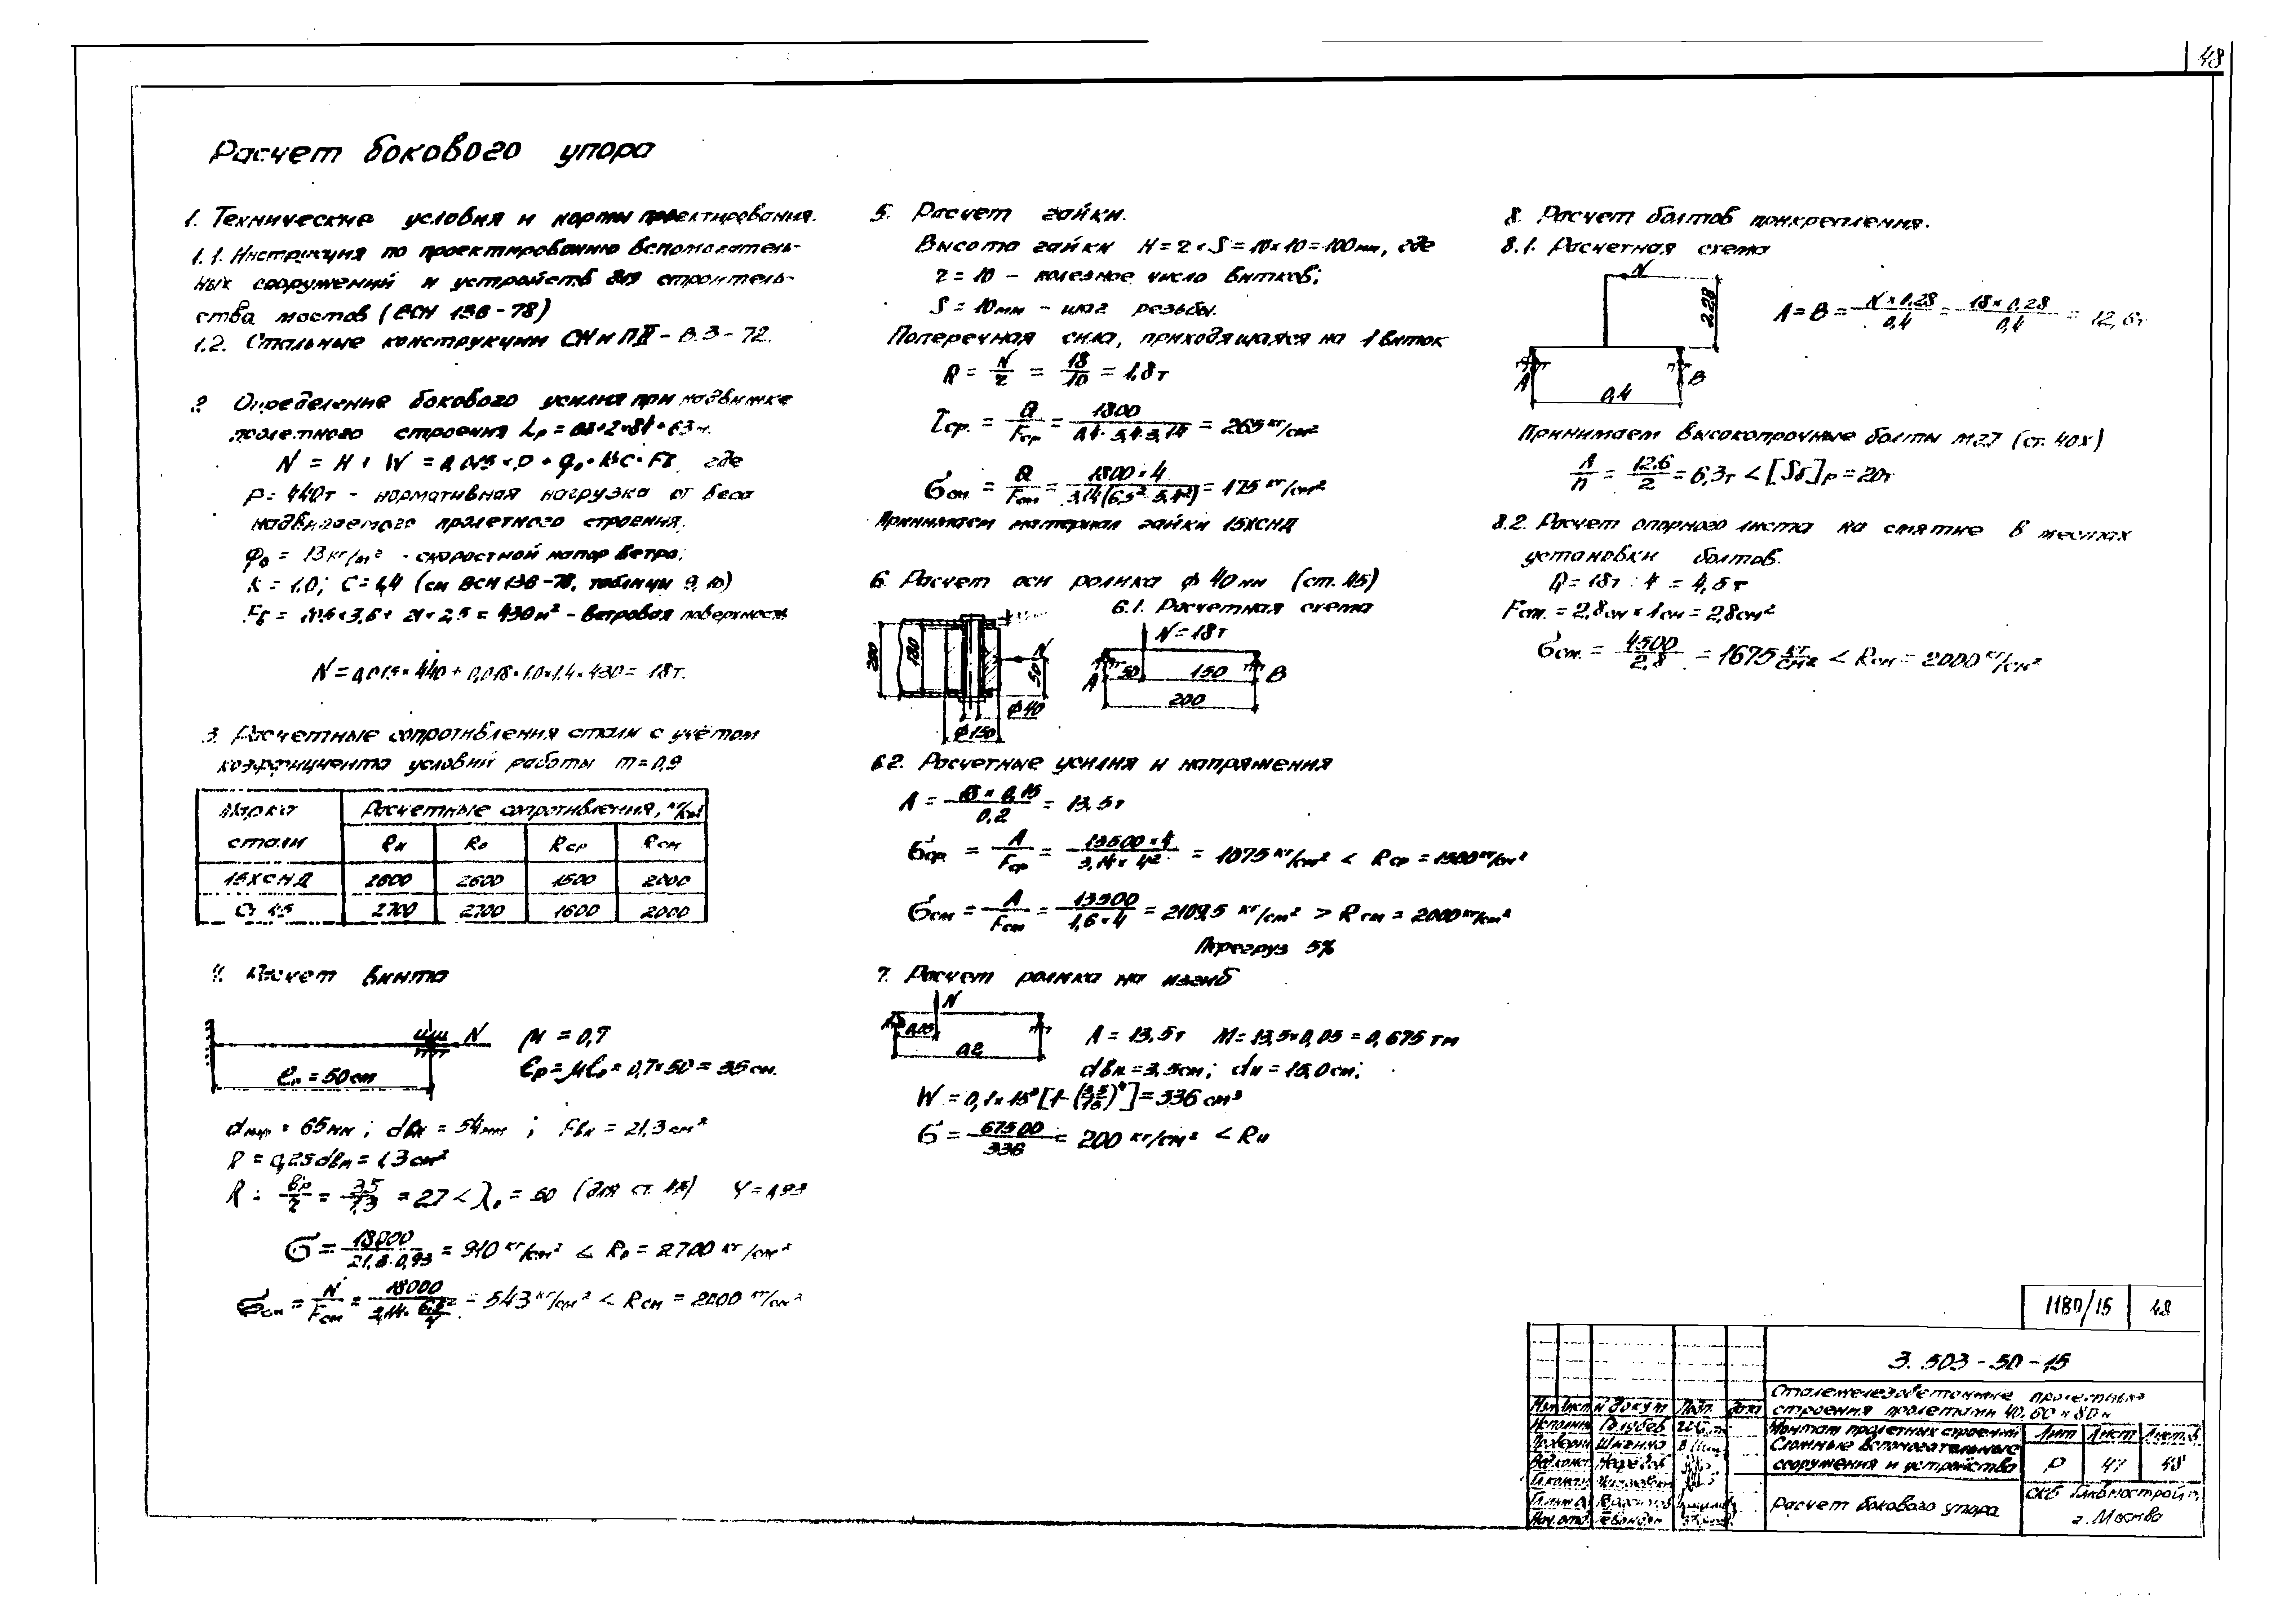 48
Расчет бокового упора
1. Технические условия и нормы проектирования.
1.1. Инструкция по проектированию вспомогатель-
ных сооружений и устройств для строитель-
ства мостов (ВСН 136-78)
1.2. Стальные конструкции СНиП II-В.3-72.
2 Определение бокового усилия при надвижке
пролетного строения
где
P = 440т - нормативная нагрузка от веса
надвигаемого пролетного строения.
кг/м² - скоростной напор ветра;
K = 1.0; C = 1,4 (см ВСН 136-78, таблицы 9, 10)
= 430 м² - ветровая поверхность
N = 0,015 × 440 + 0,018 × 1.0 × 1.4 × 430 = 18т.
3. Расчетные сопротивления стали с учётом
коэффициента условий работы m = 0,9
Марка стали Расчетные сопротивления, кг/см²
Rи Ro Rср Rсм
15ХСНД 2600 2600 1500 2000
Ст 45 2700 2700 1600 2000
4. Расчет винта
N
ℓo = 50 см
μ = 0,7
ℓp = μℓo = 0,7 × 50 = 35 см.
= 65 мм; dвн = 54 мм; Fвн = 21,3 см²
= 0,25 dвн = 1,3 см²
= 27 < λo = 60 (для ст. 45)
σ = 18000 / 21,3·0,93 = 910 кг/см² < Ro = 2700 кг/см²
σсм = N / Fсм = 18000 / = 543 кг/см² < Rсм = 2000 кг/см²
5. Расчет гайки.
Высота гайки H = z × S = 10 × 10 = 100 мм, где
z = 10 - полезное число витков;
S = 10 мм - шаг резьбы.
Поперечная сила, приходящаяся на 1 виток
Q = N / z = 18 / 10 = 1,8 т
τср. = Q / Fср = 1800 / = 265 кг/см²
σсм = Q / Fсм = 1800 × 4 / 3,14(6,5² - 5,4²) = 175 кг/см²
Принимаем материал гайки 15ХСНД
6. Расчет оси ролика ф 40 мм (ст. 45)
6.1. Расчетная схема
200 180 N 50 ф 40 ф 150
N = 18т
A 50 150 B
200
6.2. Расчетные усилия и напряжения
A = 18 × 0,15 / 0,2 = 13,5т
σср = A / Fср = 13500 × 4 / 3,14 × 4² = 1075 кг/см² < Rср = 1500 кг/см²
σсм = A / Fсм = 13500 / 1,6 × 4 = 2109,5 кг/см² > Rсм = 2000 кг/см²
Перегруз 5%
7. Расчет ролика на изгиб
N
0,05
0,2
A = 13,5т M = 13,5 × 0,05 = 0,675 тм
dвн = 3,5 см; dн = 15,0 см;
= 336 см³
σ = 67500 / 336 = 200 кг/см² < Rи
8. Расчет болтов прикрепления.
8.1. Расчетная схема
N
A B
0,4
A = B = N × 0,28 / 0,4 = 18 × 0,28 / 0,4 = 12,6т
Принимаем высокопрочные болты м27 (ст. 40х)
A / n = 12.6 / 2 = 6,3т < [Sб]р = 20т
8.2. Расчет опорного листа на смятие в местах
установки болтов.
Q = 18т : 4 = 4,5т
Fсм. = 2,8 см × 1 см = 2,8 см²
σсм. = 4500 / 2,8 = 1675 кг/см² < Rсм = 2000 кг/см²
1180/15 48
3.503-50-15
Сталежелезобетонные пролетные
строения пролетами 40, 60 и 80 м
Изм Лист N докум Подп. Дата
Исполнил Голубев
Проверил
Монтаж пролетных строений
Сложные вспомогательные
сооружения и устройства
Лит Лист Листов
Р 47 48
Расчет бокового упора
СКБ Главмостостроя
г. Москва